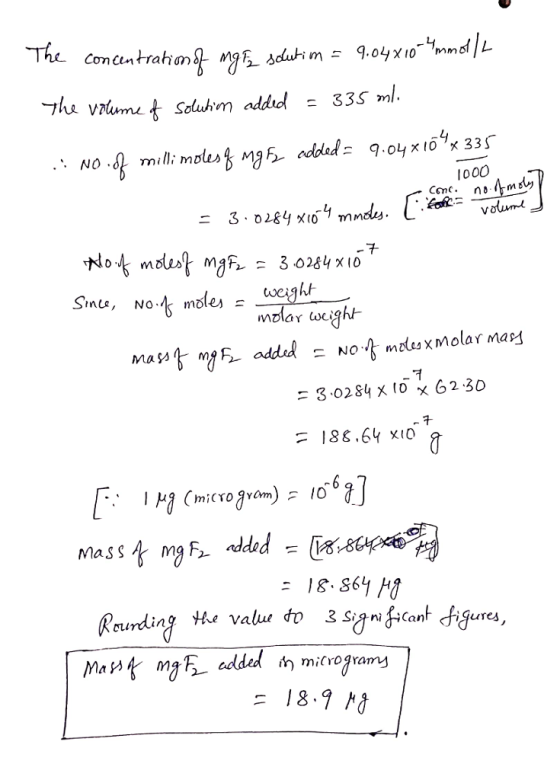 The concentration of MgF₂ solution = 9.04x10⁻⁴ mmol/L
The volume of solution added = 335 ml.
∴ NO. of milli moles of MgF₂ added = 9.04x10⁻⁴ x 335 / 1000
= 3.0284 x10⁻⁴ mmoles. [∵ Conc. = no. of moles / volume]
No. of moles of MgF₂ = 3.0284 x 10⁻⁷
Since, No. of moles = weight / molar weight
mass of MgF₂ added = NO. of moles x Molar mass
= 3.0284 x 10⁻⁷ x 62.30
= 188.64 x10⁻⁷ g
[∵ 1 μg (microgram) = 10⁻⁶ g]
Mass of MgF₂ added =
= 18.864 μg
Rounding the value to 3 significant figures,
Mass of MgF₂ added in micrograms
= 18.9 μg